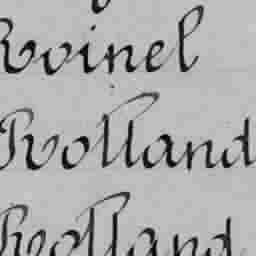 Roinel
Rolland
Rolland